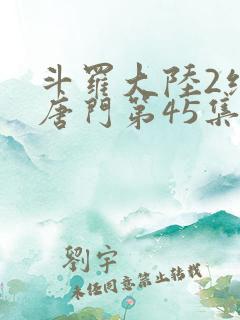 斗羅大陸2
唐門第45集
劉宇
未經同意禁止轉載